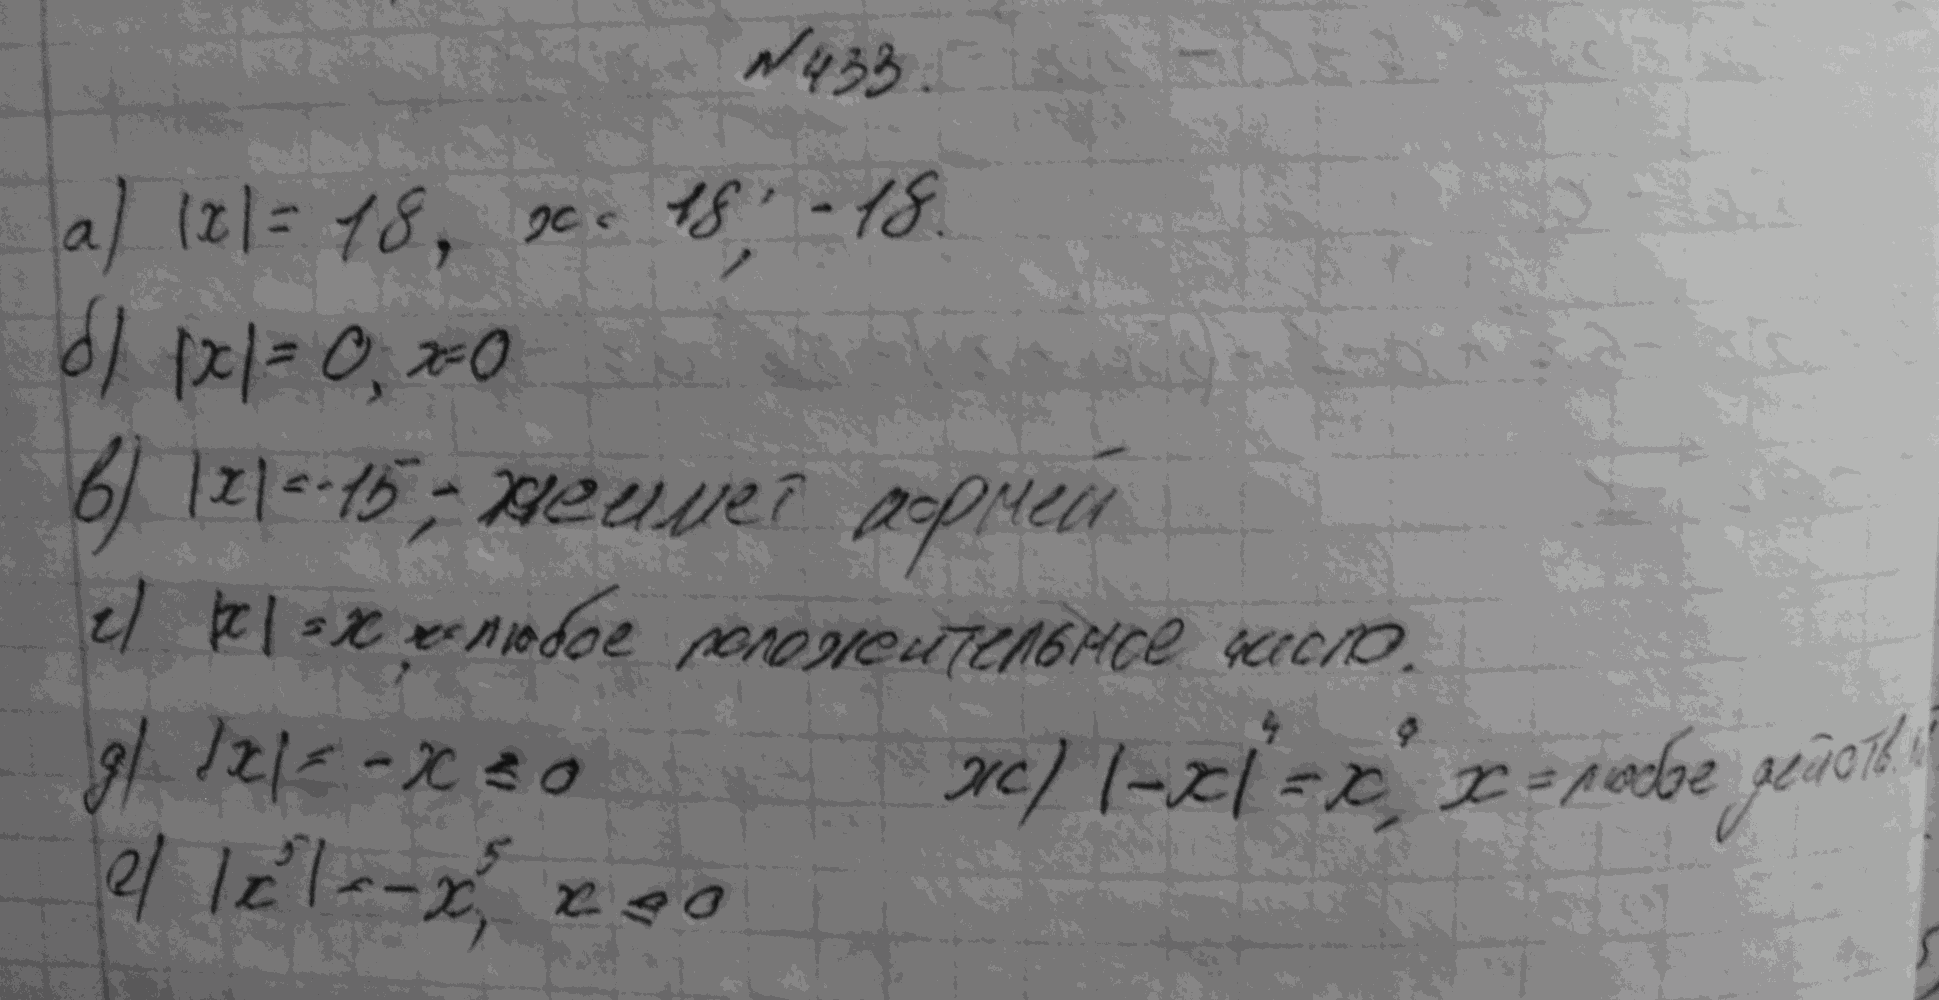 №433.
а) |x| = 18, x = 18; -18.
б) |x| = 0, x=0
в) |x| = -15, - не имет корней
г) |x| = x, x = любое положительное число.
д) |x| = -x ≤ 0
ж) |-x|⁴ = x⁴, x = любое действ.
е) |x⁵| = -x⁵, x ≤ 0